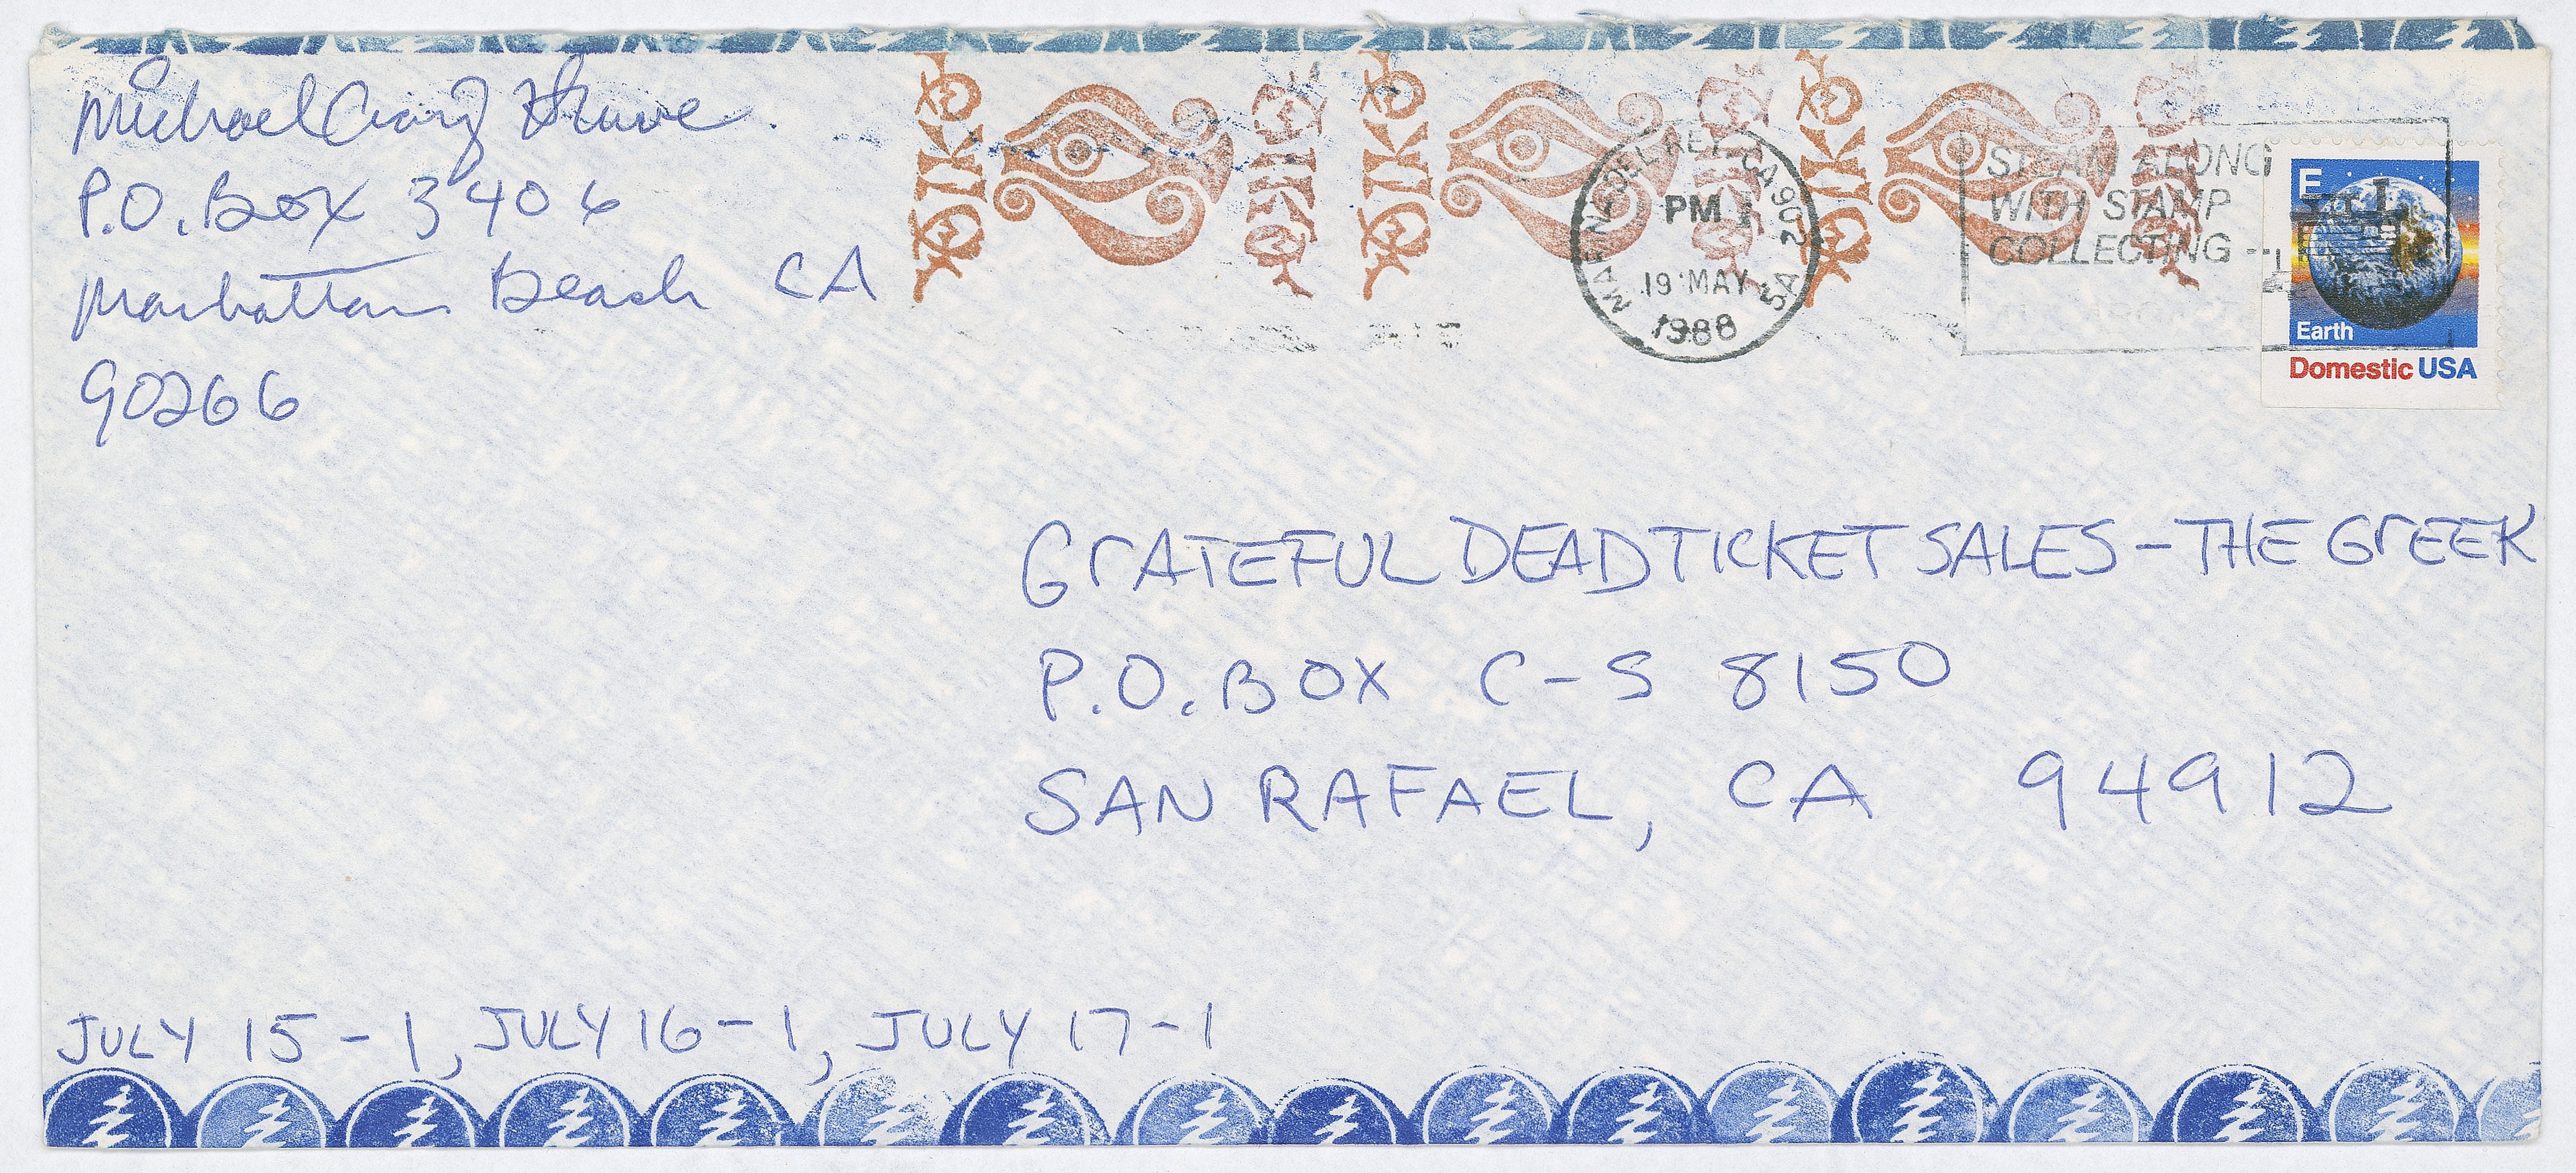 Michael Craig
P.O. Box 3406
Manhattan Beach CA
90266
IKO
IKO
IKO
MARINA DEL REY, CA 902
PM
19 MAY
1988
STEAM ALONG
WITH STAMP
COLLECTING --
E
Earth
Domestic USA
GrATEFUL DEAD TICKET SALES - THE GrEEK
P.O. BOX C-S 8150
SAN RAFAEL, CA 94912
JULY 15 - 1, JULY 16 - 1, JULY 17 - 1